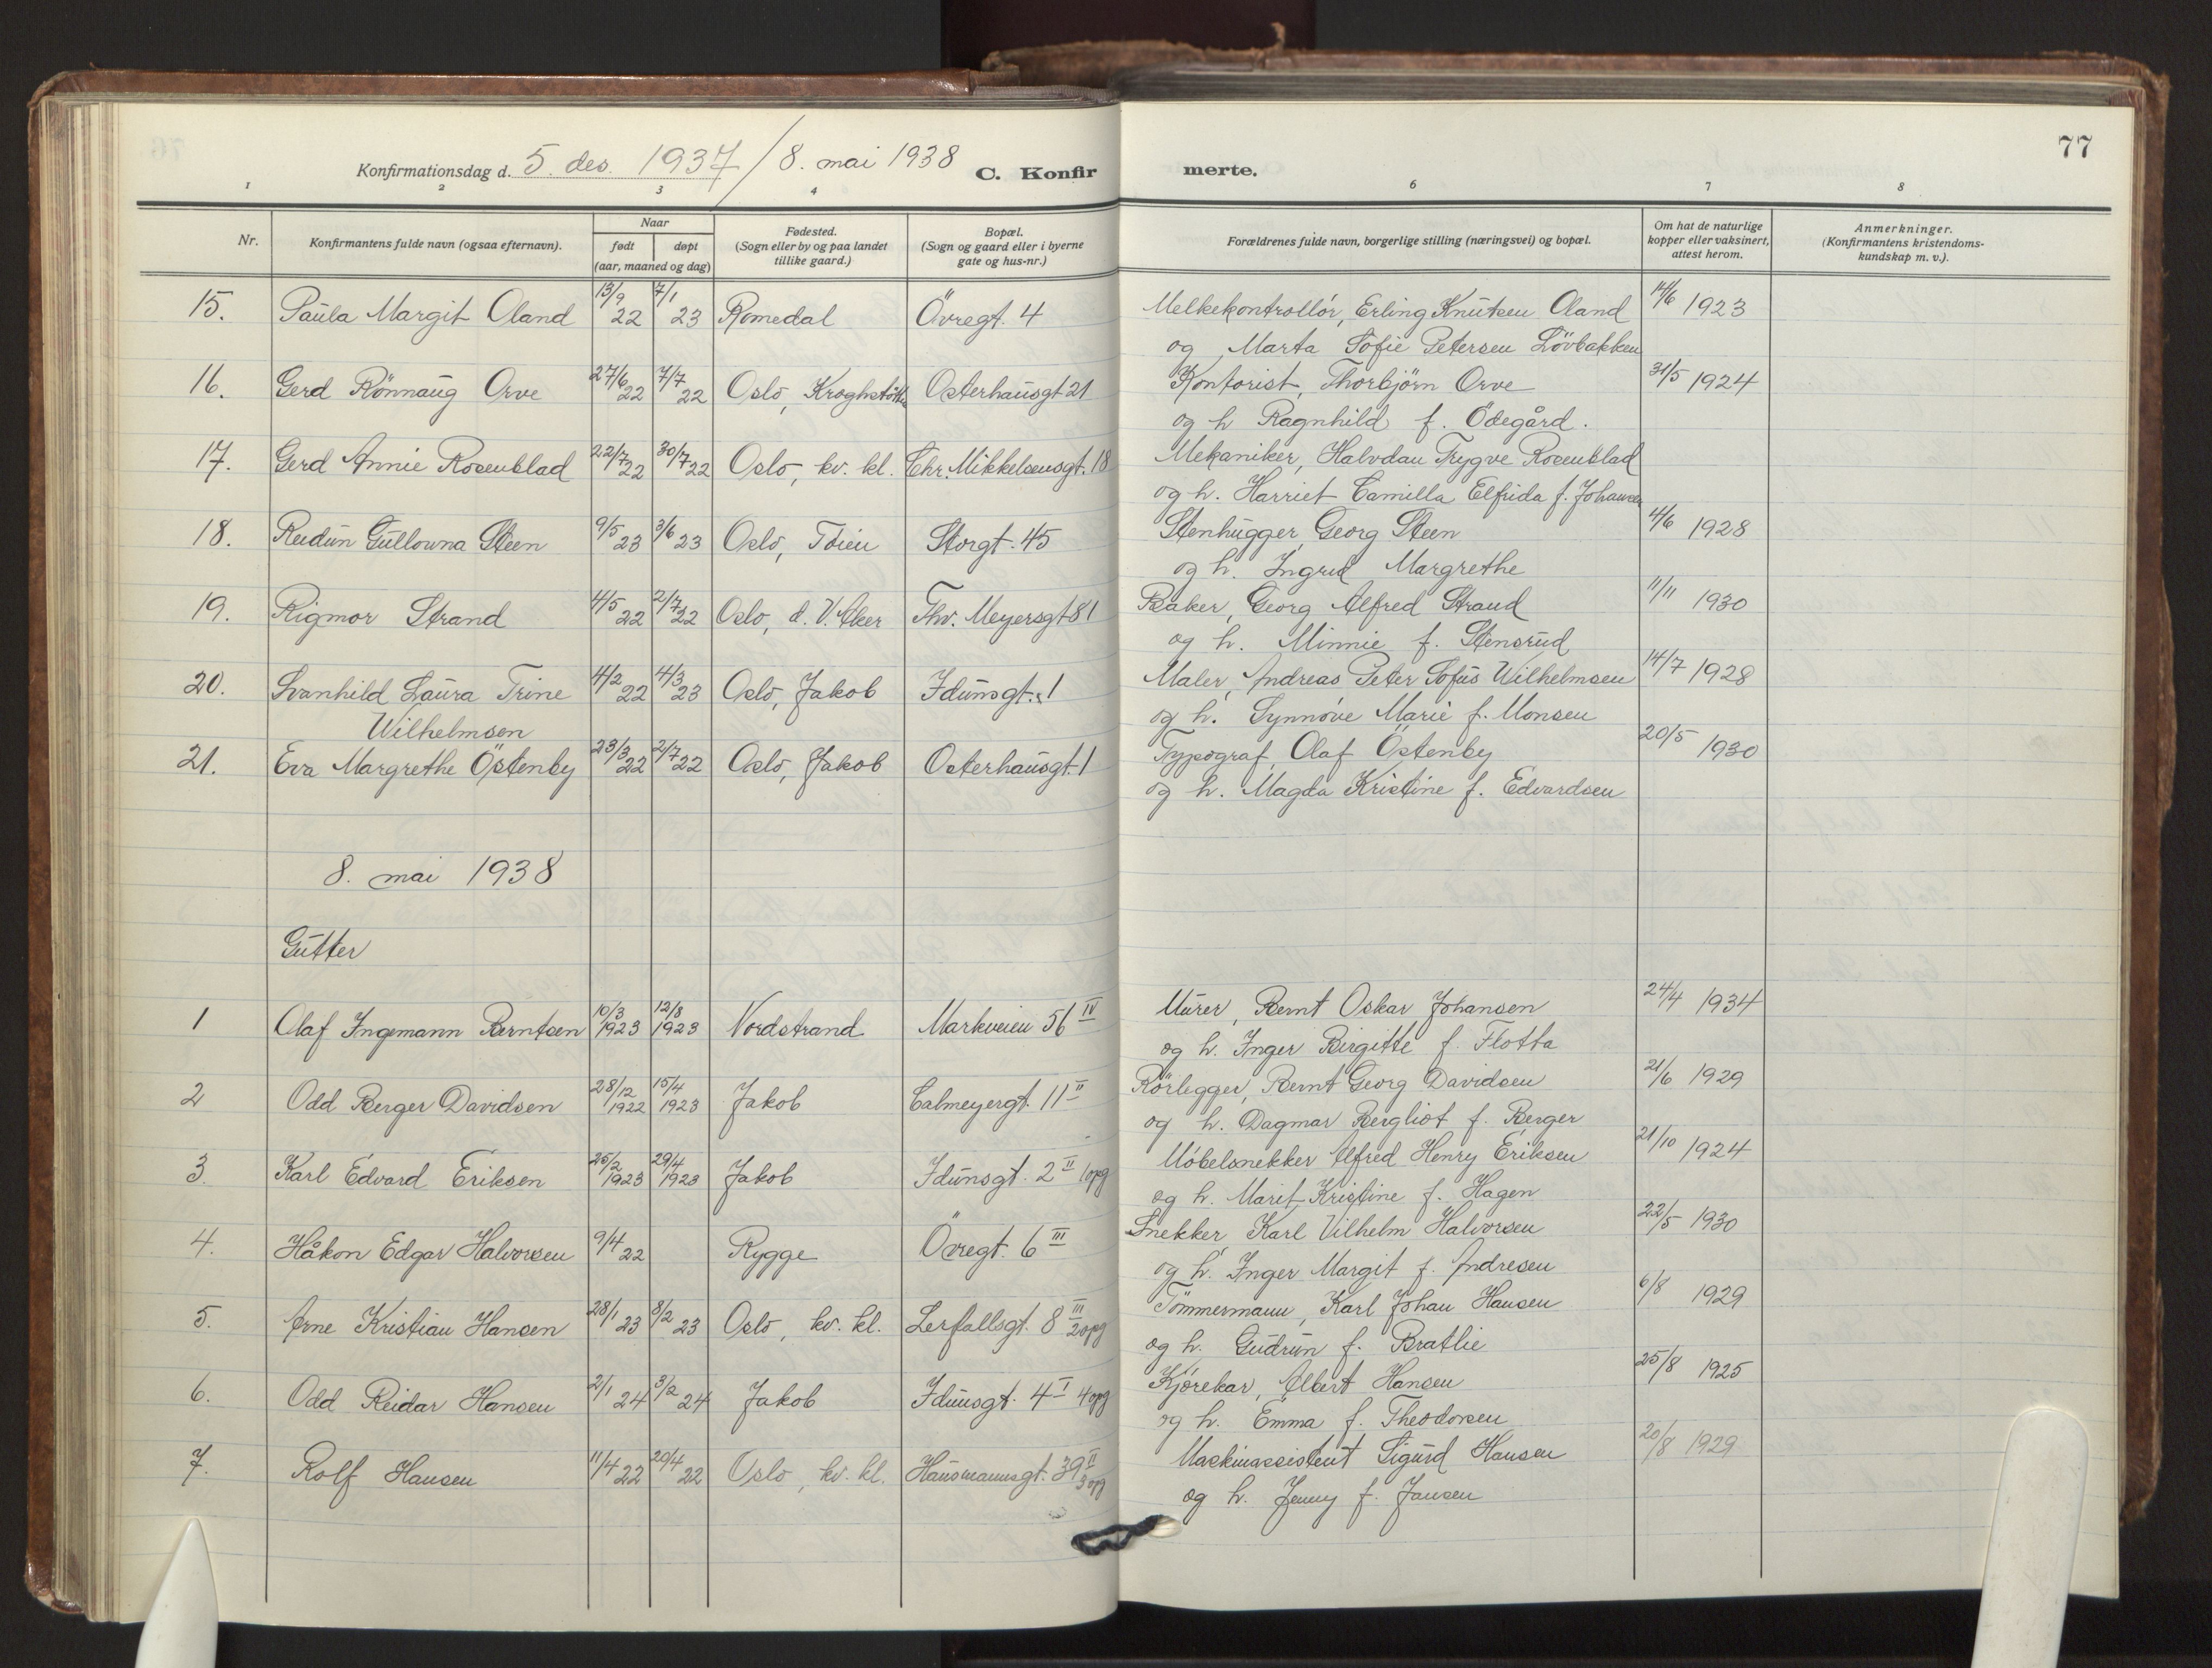 77
Konfirmationsdag d. 5. des. 1937 / 8. mai 1938 C. Konfirmerte.
1 2 3 4 6 7 8
Nr. Konfirmantens fulde navn (ogsaa efternavn). Naar født døpt (aar, maaned og dag) Fødested. (Sogn eller by og paa landet tillike gaard.) Bopæl. (Sogn og gaard eller i byerne gate og hus-nr.) Forældrenes fulde navn, borgerlige stilling (næringsvei) og bopæl. Om hat de naturlige kopper eller vaksinert, attest herom. Anmerkninger. (Konfirmantens kristendomskundskap m. v.).
15. Paula Margit Oland 13/9 22 7/1 23 Romedal Övregt. 4 Melkekontrollör, Erling Knutsen Oland 14/6 1923
og Marta Sofie Petersen Lövbakken
16. Gerd Rönnaug Orve 27/6 22 7/7 22 Oslo, Kroghstötte Osterhausgt 21 Kontorist, Thorbjörn Orve 31/5 1924
og h Ragnhild f. Ödegård.
17. Gerd Annie Rosenblad 22/7 22 30/7 22 Oslo, kv. kl. Chr. Mikkelsensgt. 18 Mekaniker, Halvdan Trygve Rosenblad
og h. Harriet Camilla Elfrida f. Johansen
18. Reidun Gullowna Steen 9/5 23 3/6 23 Oslo, Töien Storgt. 45 Stenhugger, Georg Steen 4/6 1928
og h. Ingrid Margrethe
19. Rigmor Strand 4/5 22 2/7 22 Oslo, d. V. Aker Thv. Meyersgt 81 Baker, Georg Alfred Strand 11/11 1930
og h. Minnie f. Stensrud
20. Svanhild Laura Trine 4/2 22 4/3 23 Oslo, Jakob Idunsgt. 1 Maler, Andreas Peter Sofus Wilhelmsen 14/7 1928
Wilhelmsen og h. Synnöve Marie f. Monsen
21. Eva Margrethe Östenby 23/3 22 2/7 22 Oslo, Jakob Osterhausgt. 1 Typograf, Olaf Östenby 20/5 1930
og h. Magda Kristine f. Edvardsen
8. mai 1938
Gutter
1 Olaf Ingemann Berntsen 10/3 1923 12/8 1923 Nordstrand Markveien 56 IV Murer, Bernt Oskar Johansen 24/4 1934
og h. Inger Birgitte f. Flotta
2 Odd Berger Davidsen 28/12 1922 15/4 1923 Jakob Calmeyergt. 11 II Rörlegger, Bernt Georg Davidsen 21/6 1929
og h. Dagmar Bergliot f. Berger
3. Karl Edvard Eriksen 25/2 1923 29/4 1923 Jakob Idunsgt. 2 II 1opg Möbelsnekker Alfred Henry Eriksen 21/10 1924
og h. Marit Kristine f. Hagen
4. Håkon Edgar Halvorsen 9/4 22 Rygge Övregt. 6 III Snekker Karl Vilhelm Halvorsen 22/5 1930
og h. Inger Margit f. Andresen
5. Arne Kristian Hansen 28/1 23 8/2 23 Oslo, kv. kl. Lerfallsgt. 8 III 2opg Tömmermann, Karl Johan Hansen 6/8 1929
og h. Gudrun f. Bratlie
6. Odd Reidar Hansen 2/1 24 3/2 24 Jakob Idunsgt. 4 I 4opg Kjörekar, Albert Hansen 25/8 1925
og h. Emma f. Theodorsen
7. Rolf Hansen 11/4 22 20/4 22 Oslo, kv. kl. Hausmannsgt. 39 II 3opg Maskinassistent Sigurd Hansen 20/8 1929
og h. Jenny f. Jansen